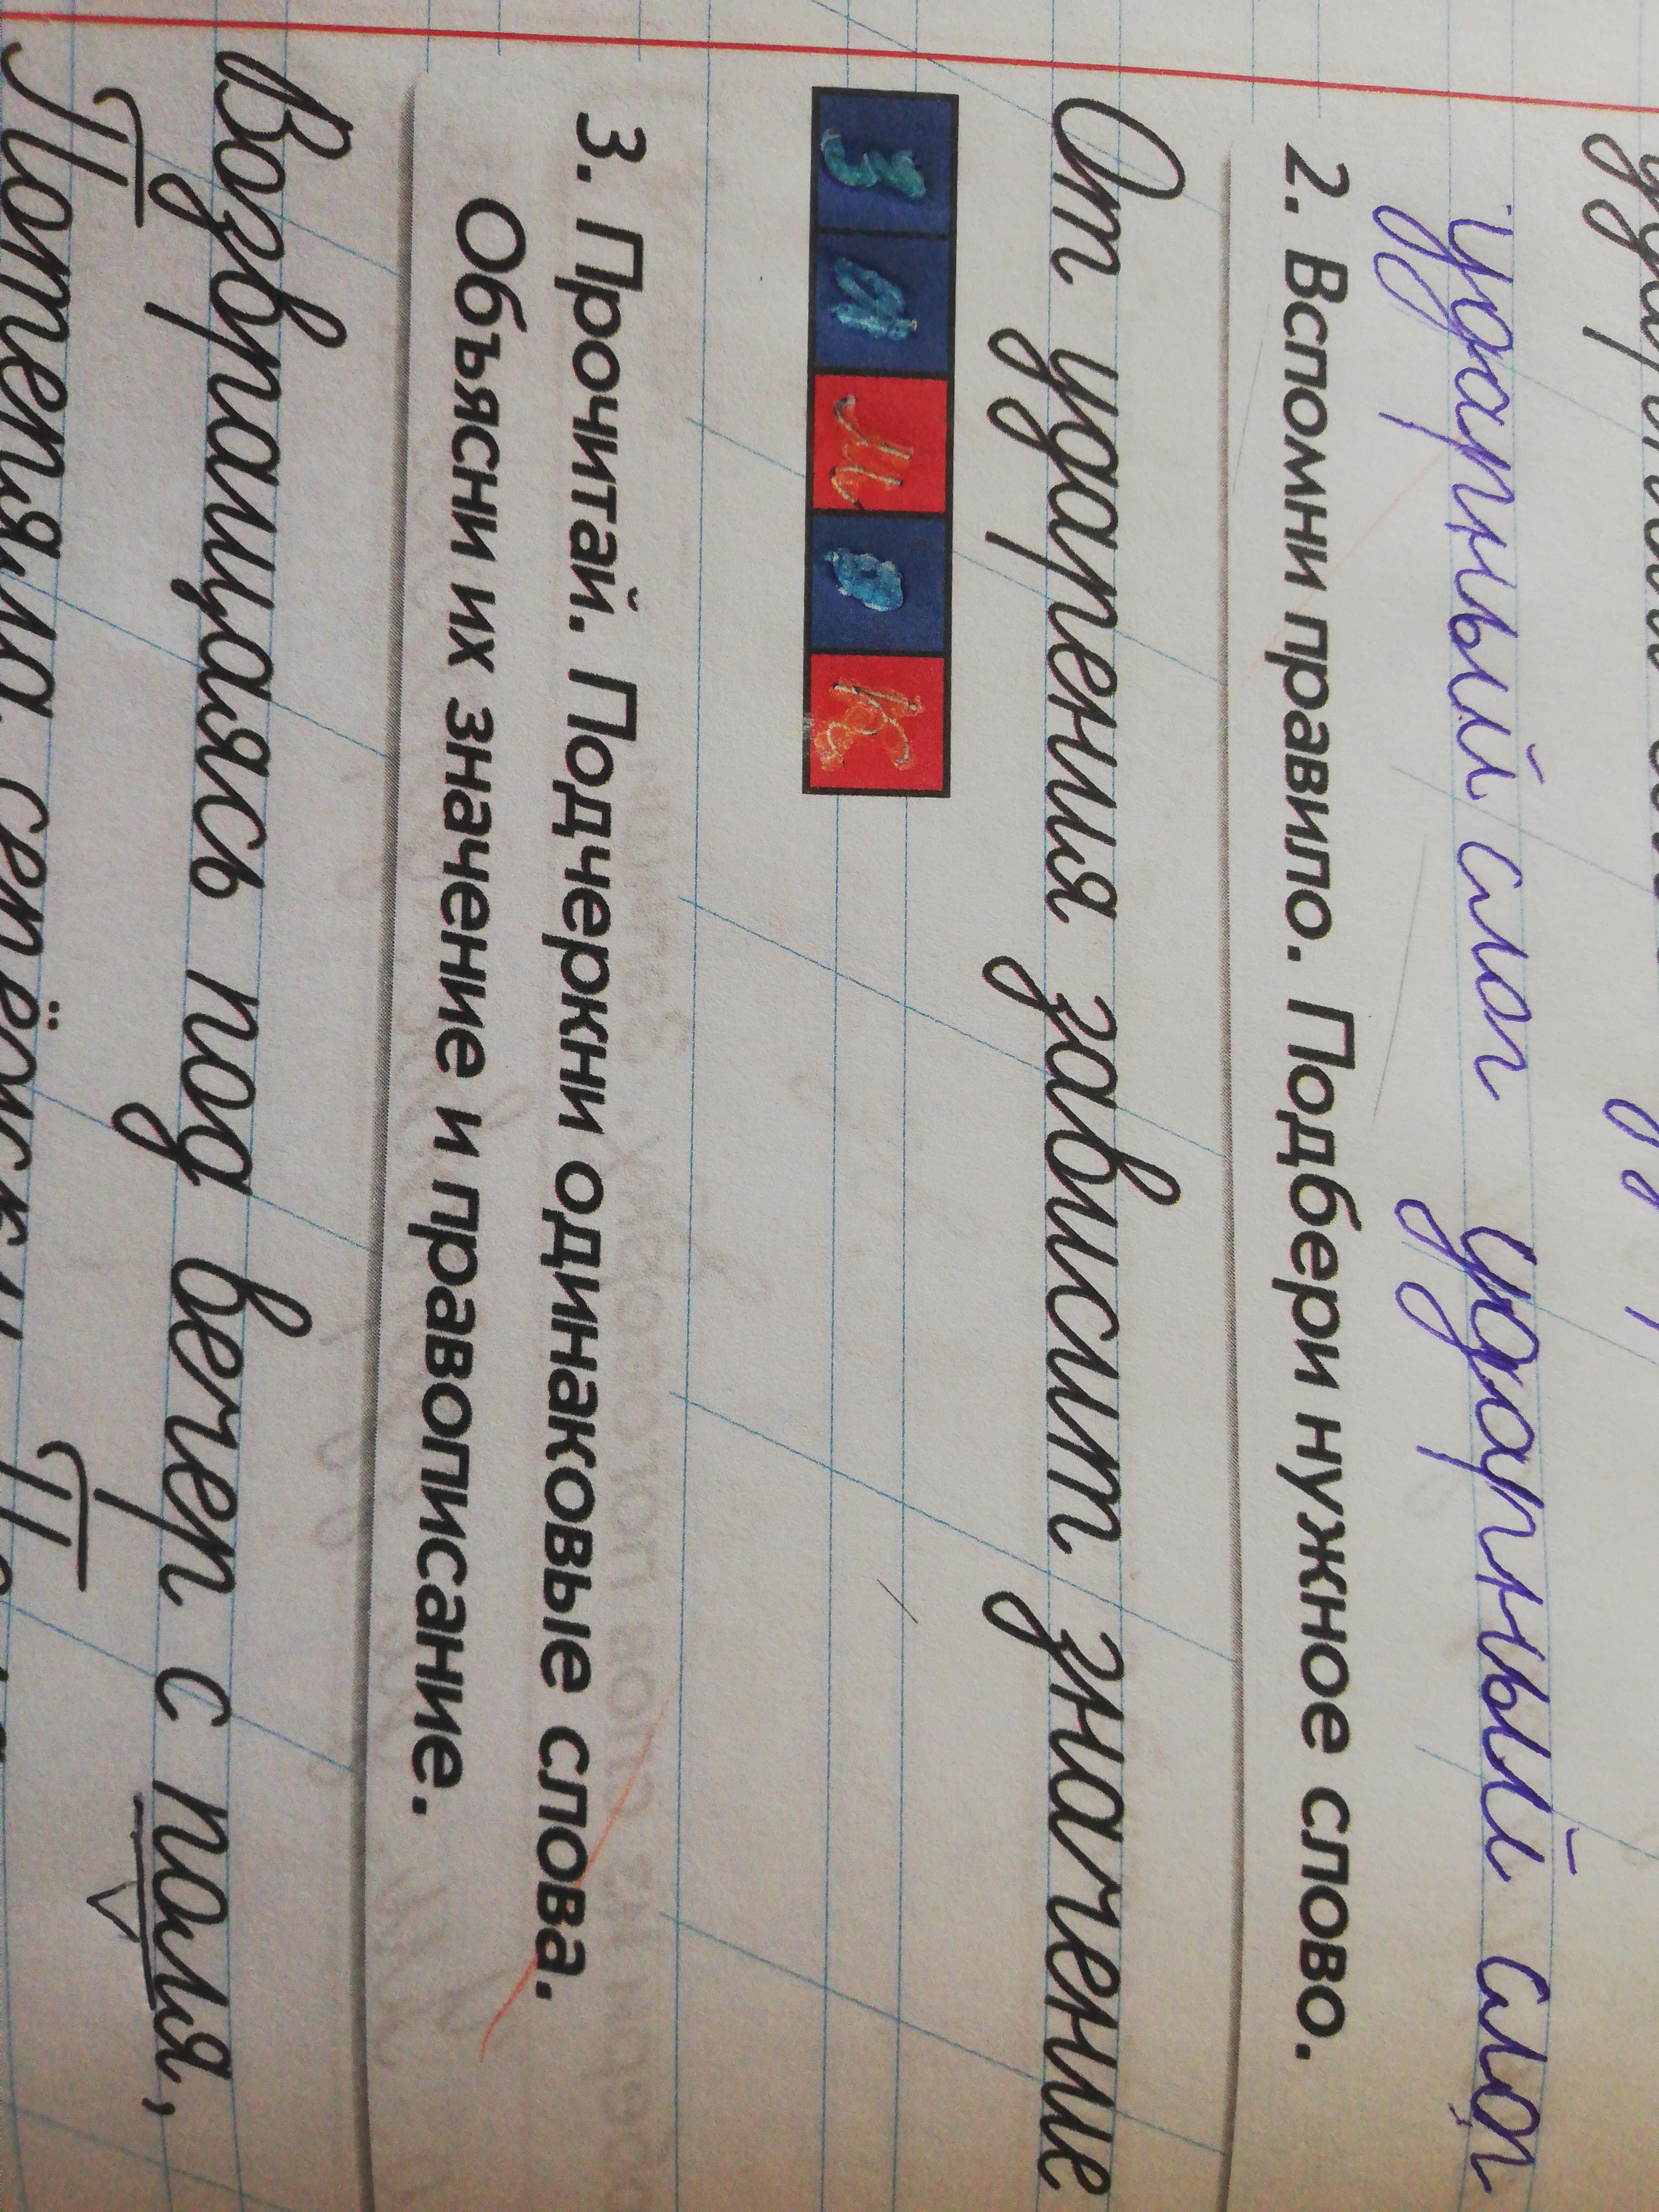 ударный слог ударный слог
2. Вспомни правило. Подбери нужное слово.
От ударения зависит значение
з и м о к
3. Прочитай. Подчеркни одинаковые слова.
Объясни их значение и правописание.
Возвращаясь под вечер с поля,
Потеряла серёжки